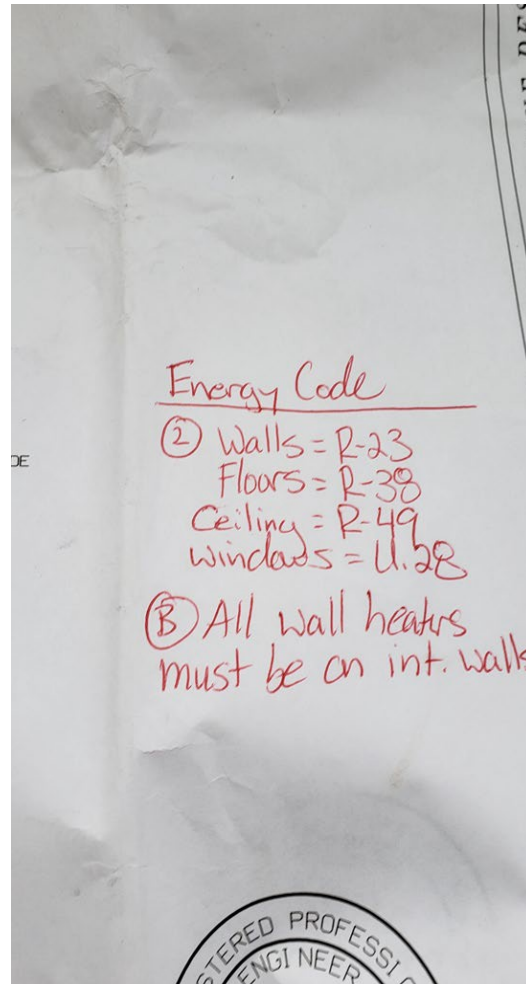 DE
Energy Code
② Walls = R-23
Floors = R-38
Ceiling = R-49
windows = U.28
Ⓑ All wall heaters
must be on int. walls
STERED PROFESSI
ENGINEER